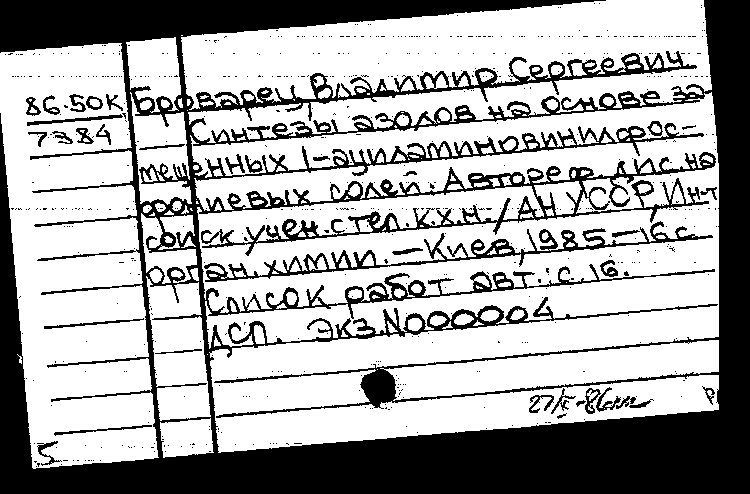 86.50К
7384
Броварец, Владимир Сергеевич.
Синтезы азолов на основе за-
мещенных 1-ациламиновинилфос-
фониевых солей: Автореф. дис. на
соиск. учен. степ. к.х.н. / АН УССР, Ин-т
орган. химии. — Киев, 1985. — 16 с.
Список работ авт.: с. 16.
ДСП. Экз. N000004.
5